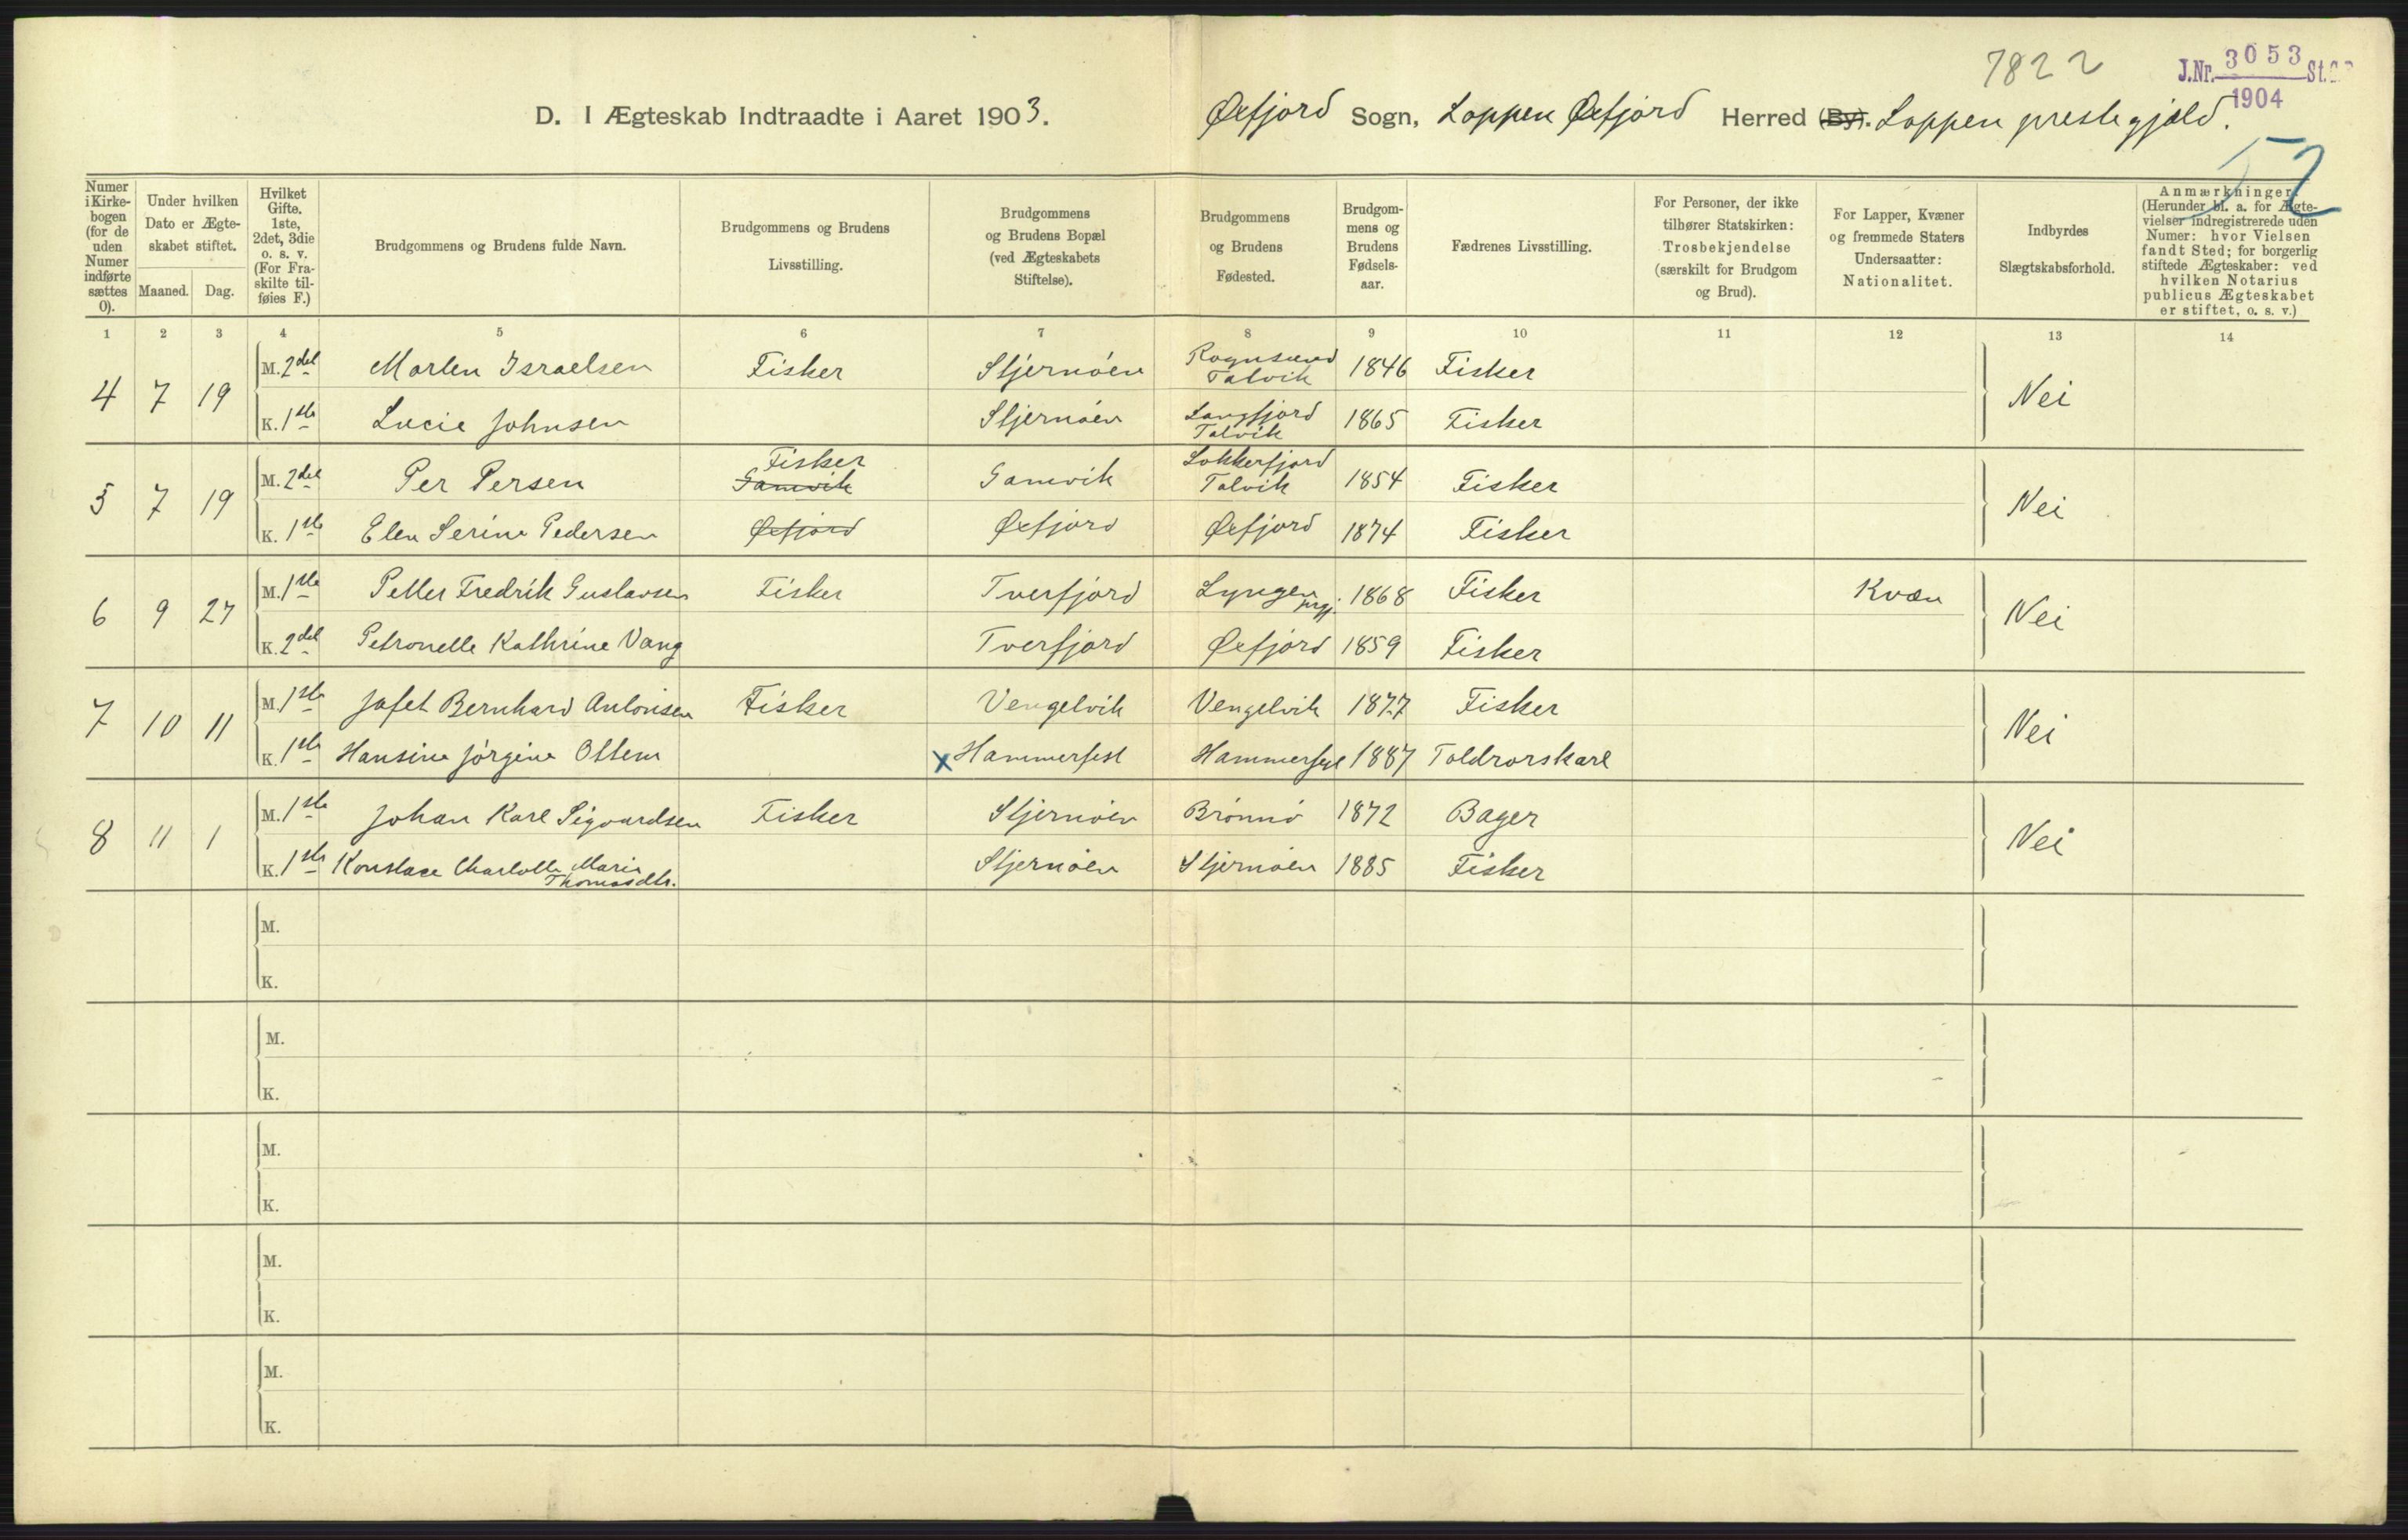 7822
J.Nr. 3053 St.
1904
D. I Ægteskab Indtraadte i Aaret 1903. Øxfjord Sogn, Loppen Øxfjord Herred (By). Loppen prestegjæld.
52
Numer i Kirkebogen (for de uden Numer indførte sættes 0).
Under hvilken Dato er Ægteskabet stiftet.
Maaned. Dag.
Hvilket Gifte. 1ste, 2det, 3die o. s. v. (For Fraskilte tilføies F.)
Brudgommens og Brudens fulde Navn.
Brudgommens og Brudens Livsstilling.
Brudgommens og Brudens Bopæl (ved Ægteskabets Stiftelse).
Brudgommens og Brudens Fødested.
Brudgommens og Brudens Fødselsaar.
Fædrenes Livsstilling.
For Personer, der ikke tilhører Statskirken: Trosbekjendelse (særskilt for Brudgom og Brud).
For Lapper, Kvæner og fremmede Staters Undersaatter: Nationalitet.
Indbyrdes Slægtskabsforhold.
Anmærkninger. (Herunder bl. a. for Ægtevielser indregistrerede uden Numer: hvor Vielsen fandt Sted; for borgerlig stiftede Ægteskaber: ved hvilken Notarius publicus Ægteskabet er stiftet, o. s. v.)
1 2 3 4 5 6 7 8 9 10 11 12 13 14
4 7 19 M. 2det Morten Israelsen Fisker Stjernøen Rognsund Talvik 1846 Fisker Nei
K. 1ste Lucie Johnsen Stjernøen Langfjord Talvik 1865 Fisker
5 7 19 M. 2det Per Persen Fisker Gamvik Gamvik Lokkerfjord Talvik 1854 Fisker Nei
K. 1ste Elen Serine Pedersen Øxfjord Øxfjord Øxfjord 1874 Fisker
6 9 27 M. 1ste Petter Fredrik Gustavsen Fisker Tverfjord Lyngen prgj. 1868 Fisker Kvæn Nei
K. 2det Petronelle Kathrine Vang Tverfjord Øxfjord 1859 Fisker
7 10 11 M. 1ste Jafet Bernhard Antonisen Fisker Vengelvik Vengelvik 1877 Fisker Nei
K. 1ste Hansine Jørgine Ottem x Hammerfest Hammerfest 1887 Toldrorskarl
8 11 1 M. 1ste Johan Karl Sigvardsen Fisker Stjernøen Brønnø 1872 Bager Nei
K. 1ste Konstace Charlotte Marie Thomasdtr. Stjernøen Stjernøen 1885 Fisker
M.
K.
M.
K.
M.
K.
M.
K.
M.
K.